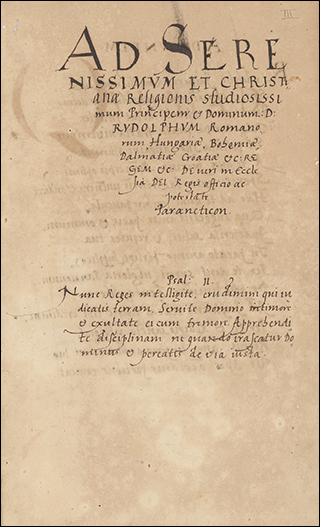 III
AD SERE
NISSIMVM ET CHRISTI
anæ Religionis studiosissi
mum Principem & Dominum: D:
RVDOLPHVM Romano
rum Hungariæ, Bohemiæ,
Dalmatiæ Croatiæ &c: RE
GEM &c: De veri in Eccle
sia DEI Regis officio ac
potestate
Paræneticon.
Psal: II.
Nunc Reges intelligite, erudimini qui iu
dicatis terram, Servite Domino in timore
& exultate ei cum tremore Apprehendi
te disciplinam ne quando irascatur Do
minus & pereatis de via iusta.